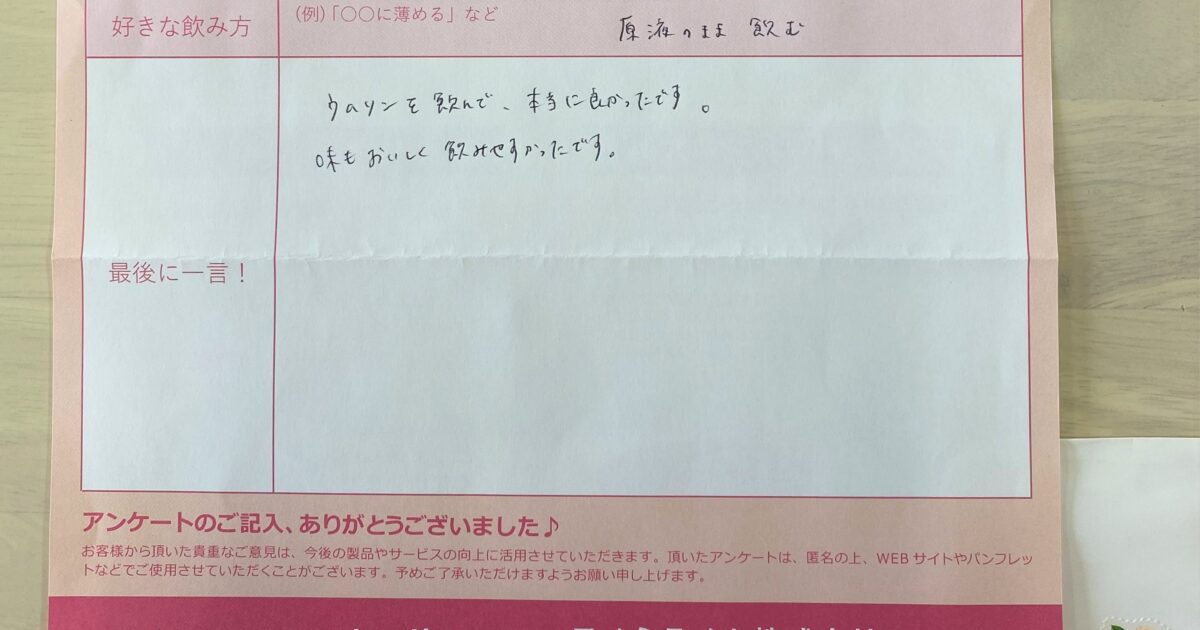 好きな飲み方
(例)「〇〇に薄める」など
原液のまま 飲む
ウムリンを飲んで、本当に良かったです。
味もおいしく 飲みやすかったです。
最後に一言！
アンケートのご記入、ありがとうございました♪
お客様から頂いた貴重なご意見は、今後の製品やサービスの向上に活用させていただきます。頂いたアンケートは、匿名の上、WEBサイトやパンフレッ
トなどでご使用させていただくことがございます。予めご了承いただけますようお願い申し上げます。